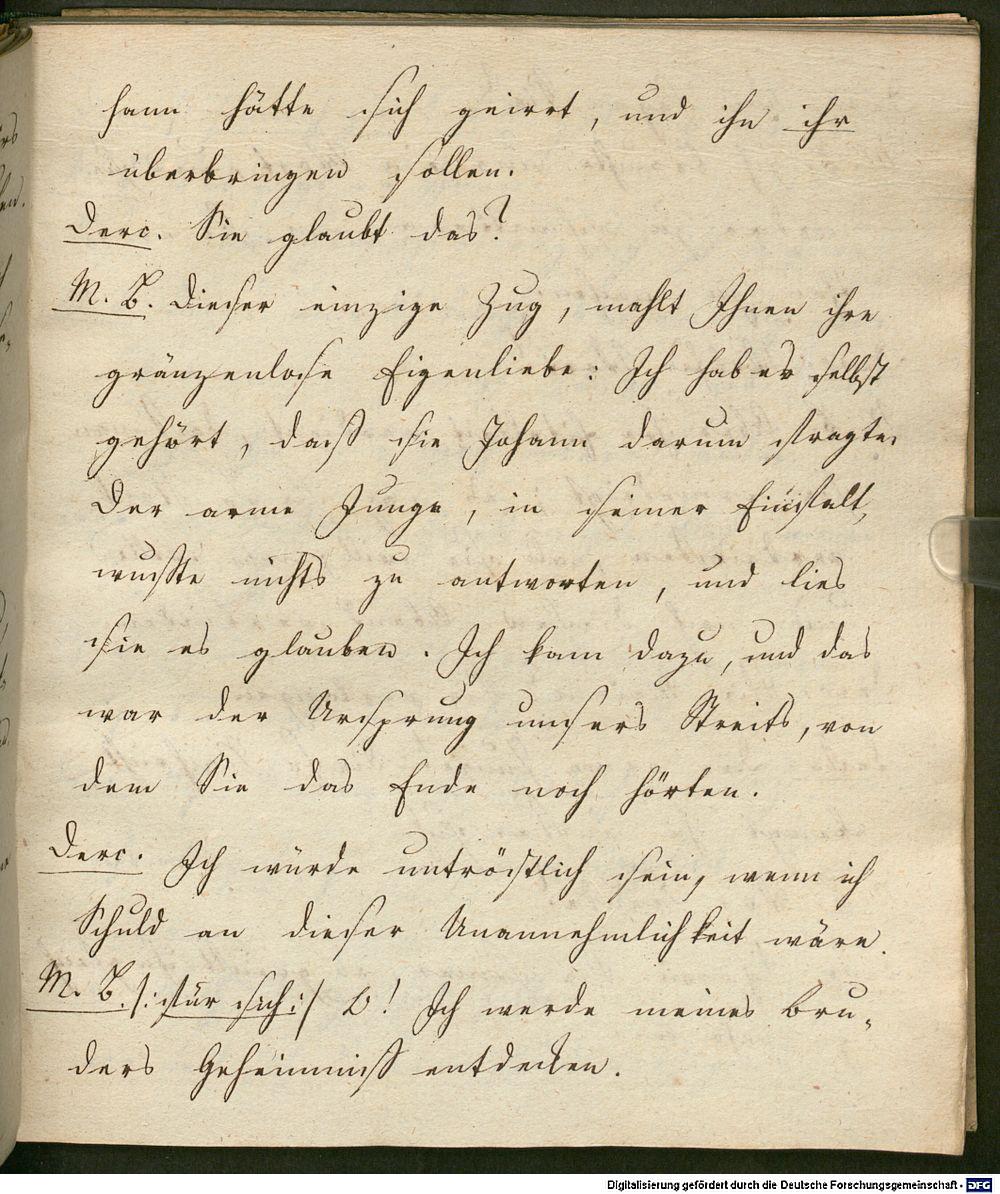 hann hätte sich geirrt, und ihn ihr
überbringen sollen.
Derc. Sie glaubt das?
M. B. Dieser einzige Zug, mahlt Ihnen ihre
gränzenlose Eigenliebe: Ich hab es selbst
gehört, dass sie Johann darum fragte.
Der arme Junge, in seiner Einfalt,
wusste nichts zu antworten, und lies
sie es glauben. Ich kam dazu, und das
war der Ursprung unsers Streits, von
dem Sie das Ende noch hörten.
Derc. Ich würde untröstlich sein, wenn ich
Schuld an dieser Unannehmlichkeit wäre.
M. B. /: für sich :/ O! Ich werde meines Bru-
ders Geheimniss entdecken.
Digitalisierung gefördert durch die Deutsche Forschungsgemeinschaft - DFG